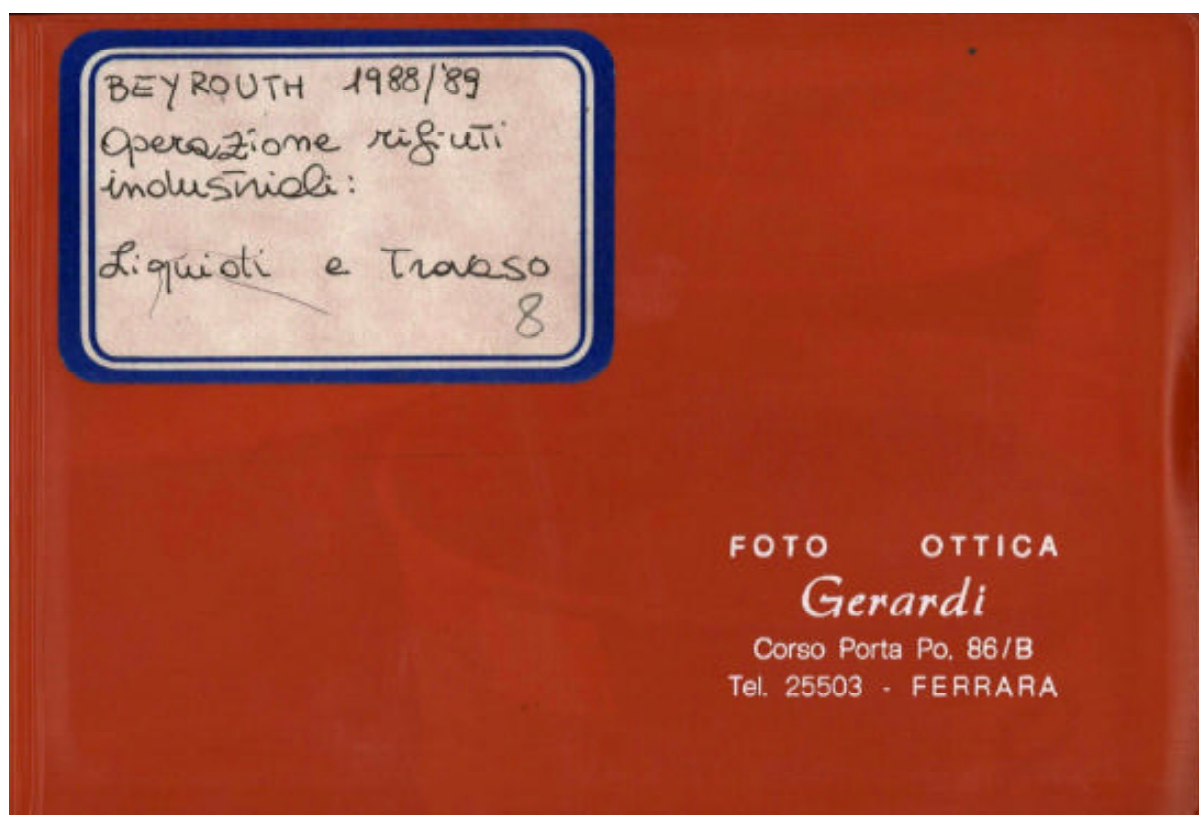 BEYROUTH 1988/'89
Operazione rifiuti
industriali:
Liquidi e Travaso
8
FOTO OTTICA
Gerardi
Corso Porta Po, 86/B
Tel. 25503 - FERRARA